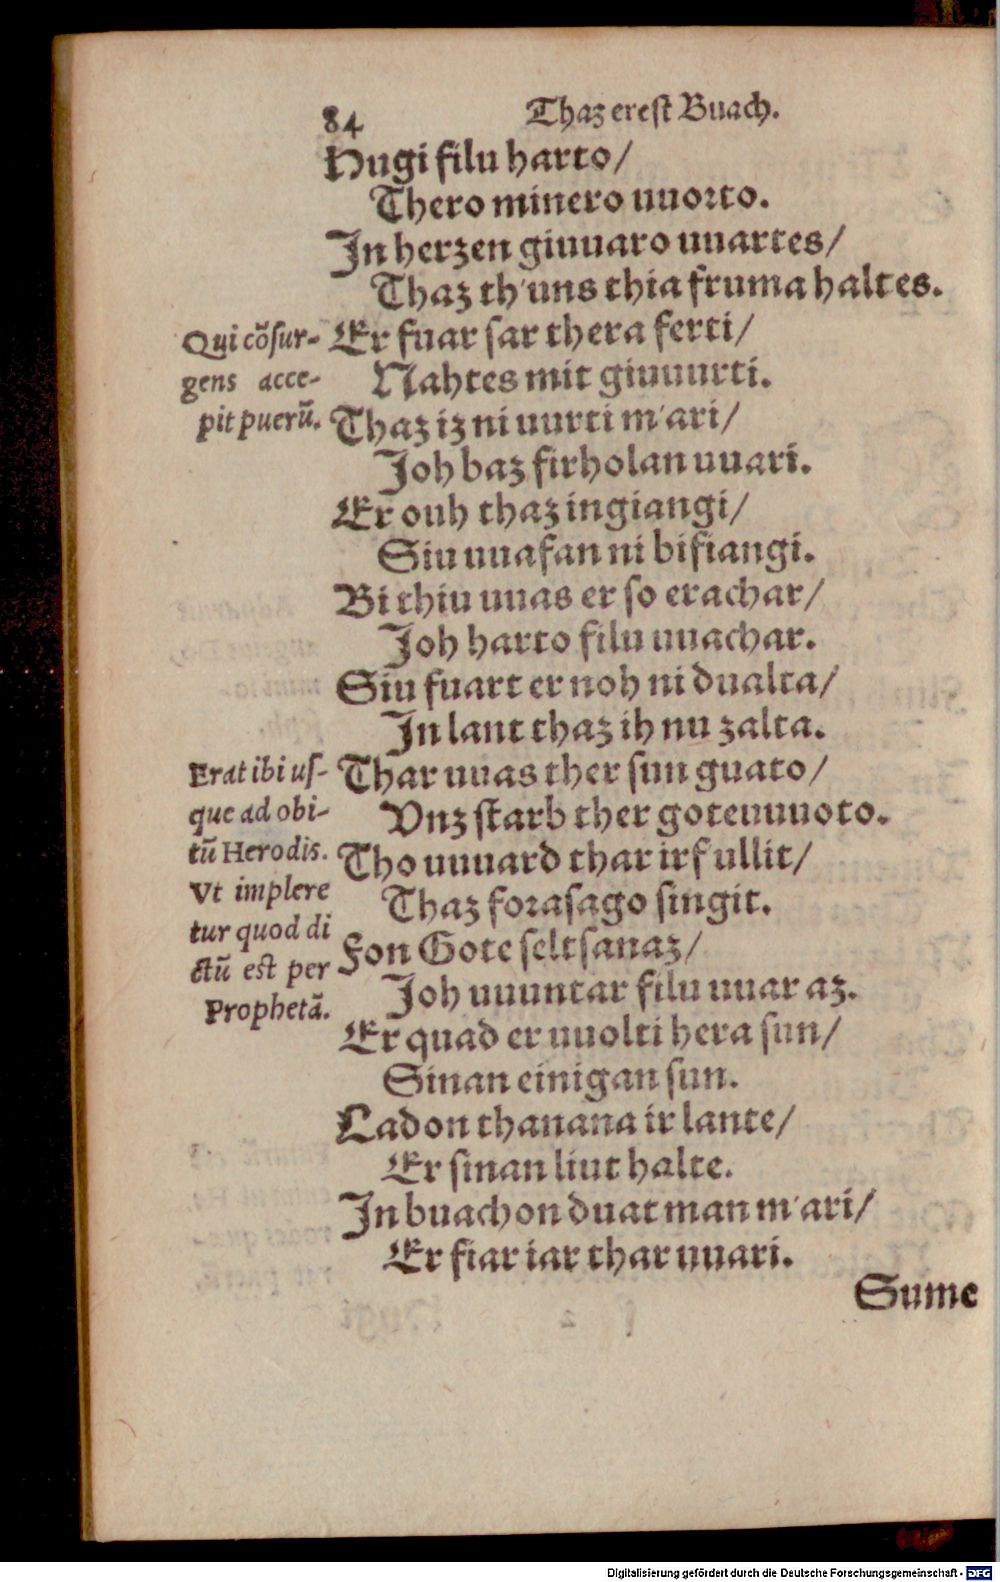 84
Thaz erest Buach.
Hugi filu harto/
Thero minero uuorto.
In herzen giuuaro uuartes/
Thaz th'uns thia fruma haltes.
Qui cõsur-
gens acce-
pit puerũ.
Er fuar sar thera ferti/
Nahtes mit giuuurti.
Thaz iz ni uurti m'ari/
Joh baz firholan uuari.
Er ouh thaz ingiangi/
Siu uuafan ni bifiangi.
Bi thiu uuas er so erachar/
Joh harto filu uuachar.
Siu fuart er noh ni dualta/
In lant thaz ih nu zalta.
Erat ibi us-
que ad obi-
tũ Herodis.
Vt implere
tur quod di
ctũ est per
Prophetã.
Thar uuas ther sun guato/
Vnz starb ther goteuuuoto.
Tho uuuard thar irfullit/
Thaz forasago singit.
Fon Gote seltsanaz/
Joh uuuntar filu uuar az.
Er quad er uuolti hera sun/
Sinan einigan sun.
Ladon thanana ir lante/
Er sinan liut halte.
In buachon duat man m'ari/
Er fiar iar thar uuari.
Sume
Digitalisierung gefördert durch die Deutsche Forschungsgemeinschaft - DFG